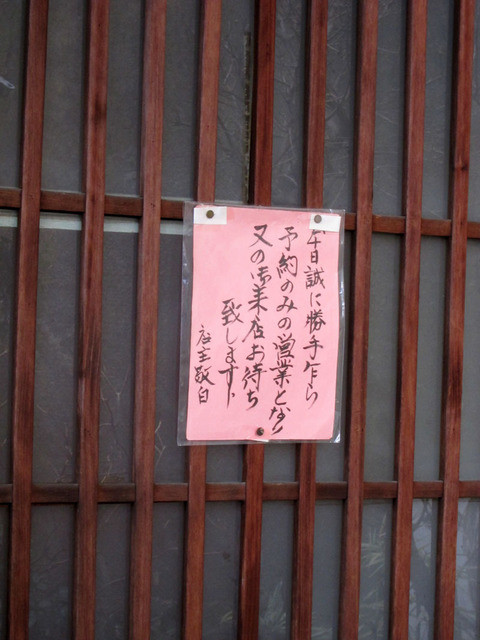 本日誠に勝手乍ら
予約のみの営業となり
又の御来店お待ち
致します
店主敬白